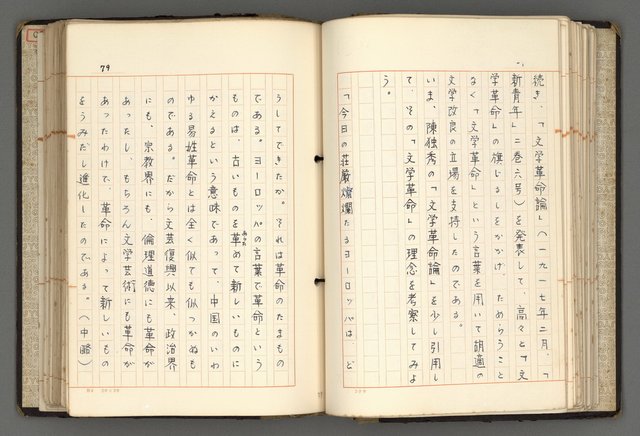 続き、「文学革命論」(一九一七年二月、「
新青年」二巻六号)を発表して、高々と「文
学革命」の旗じるしをかかげ、ためらうこと
なく「文学革命」という言葉を用いて胡適の
文学改良の立場を支持したのである。
いま、陳独秀の「文学革命論」を少し引用し
て、その「文学革命」の理念を考察してみよ
う。
「今日の荘厳燦爛たるヨーロッパは、ど
79
うしてできたか。それは革命のたまもの
である。ヨーロッパの言葉で革命という
ものは、古いものを革めて新しいものに
かえるという意味であって、中国のいわ
ゆる易姓革命とは全く似ても似つかぬも
のである。だから文芸復興以来、政治界
にも、宗教界にも、倫理道徳にも革命が
あったし、もちろん文学芸術にも革命が
あったわけで、革命によって新しいもの
をうみだし進化したのである。(中略)